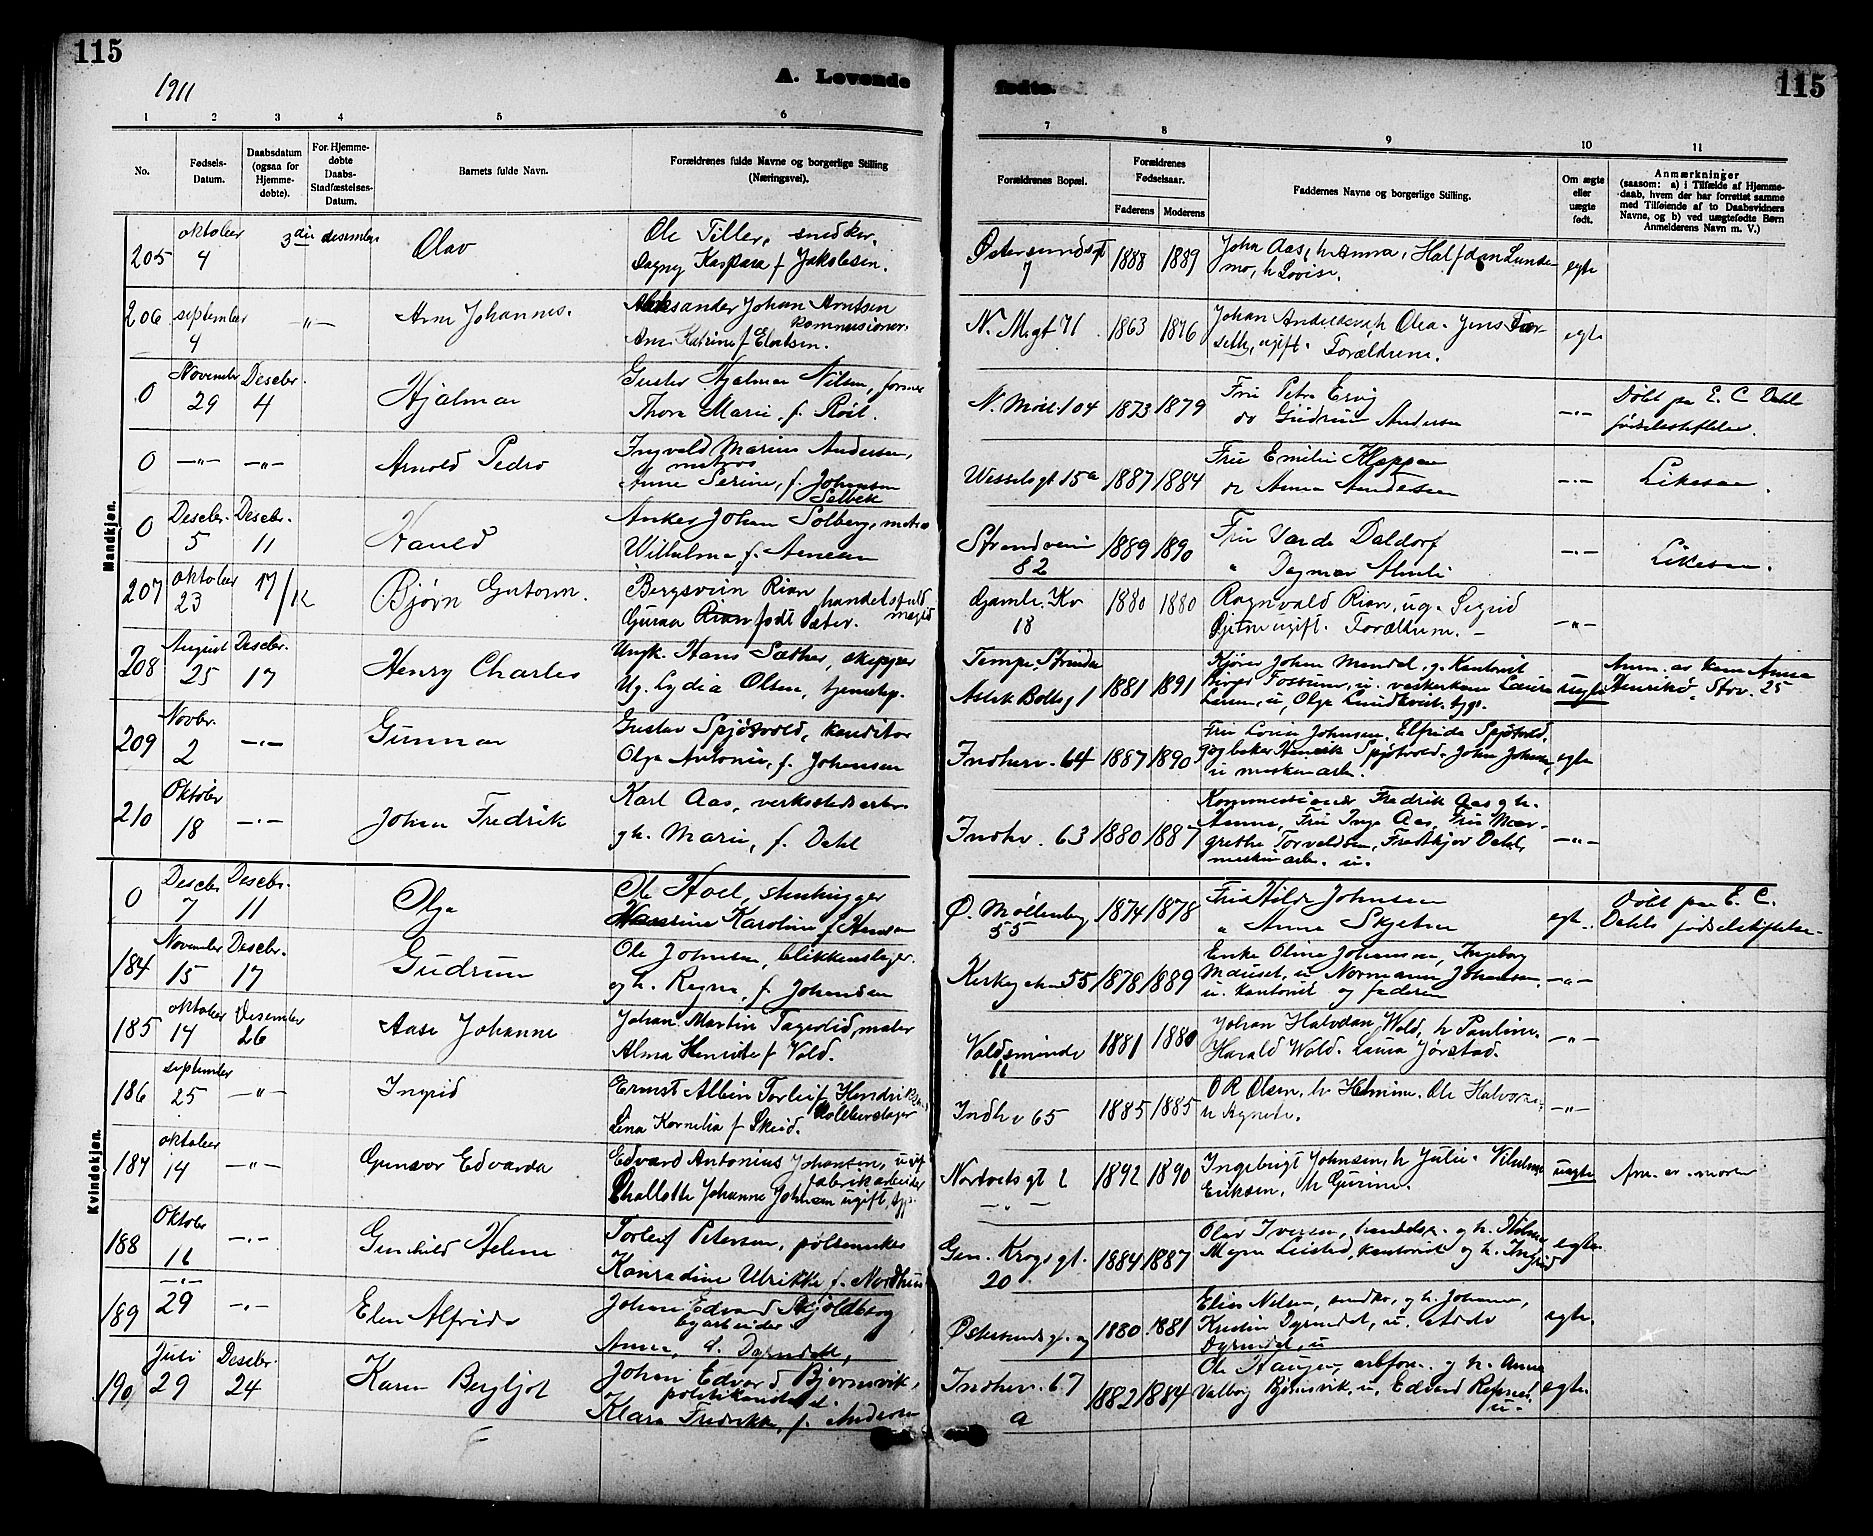 115
1911
A. Levende
fødte.
115
1 2 3 4 5 6 7 8 9 10 11
No.
Fødsels-
Datum.
Daabsdatum
(ogsaa for
Hjemme-
døbte).
For Hjemme-
døbte
Daabs-
Stadfæstelses-
Datum.
Barnets fulde Navn.
Forældrenes fulde Navne og borgerlige Stilling
(Næringsvei).
Forældrenes Bopæl.
Forældrenes
Fødselsaar.
Faderens Moderens
Faddernes Navne og borgerlige Stilling.
Om ægte
eller
uægte
født.
Anmærkninger
(saasom: a) i Tilfælde af Hjemme-
daab, hvem der har forrettet samme
med Tilføiende af to Daabsvidners
Navne, og b) ved uægtefødte Børn
Anmelderens Navn m. V.)
Mandkjøn.
205 oktober 4 3die desember Olav
Ole Tiller, snedker.
Dagny Kaspara f Jakobsen.
7 1888 1889
John Aas, h Anna, Halfdan Lunde
mo, h Lovise. egte
206 september 4 -"- Arne Johannes.
Aleksander Johan Arntsen
kommisionær.
N. Mgt 71 1863 1876
Forældrene. egte
0 November 29 Desebr. 4 Hjalmar
Gustav Hjalmar Nilsen, former
Thora Marie, f. Röst.
1873 1879
Fru Petra
do Gudrun Andersen -"-
Döbt på E. C. Dahls
födselsstiftelse.
0 -"- -"- Arnold Pedro
Ingvald Marius Andersen,
matros
Anne Serine, f. Johansen
Selbek
Wesselsgt 15a 1887 1884
Fru Emilie Kleppen
do Anna Andersen -"-
Likesaa.
0 Desebr. 5 Desebr. 11
Anker Johan Solberg, matros
Wilhelma f. Arnesen
Strandveien
82 1889 1890
Fru Varda Daldorf
" Dagmar -"-
Likesaa.
207 oktober 23 17/12 Bjørn Gutorm.
Bergsvein Rian handelsfuld
mægtig
Guraa Rian født Sæter.
Gamle Kv
18 1880 1880
Ragnvald Rian, ug. Sigrid
ugift. Forældrene. - -"-
208 August 25 Desebr. 17 Henry Charles
Ungk. Hans Sæther, skipper
Ug. Lydia Olsen, tjenestep.
Tempe, Strinda
Aslak Boltsgt 1881 1891
uegte
209 Novbr. 2 -"- Gunnar
Gustav Spjøtvold, konditor
Olga Antonie, f. Johansen
Indherv. 64 1887 1890
Fru Lovise Johnsen, Elfrida Spjøtvold,
egte
210 Oktobr 18 -"- Johan Fredrik
Karl Aas, verkstedsarb.
og h. Marie, f. Dahl
Indhv. 63 1880 1887
Kommissionær Fredrik Aas og h.
Anna, Fru Inga Aas, Fru Mar-
grethe Torvaldsen, Fredthjov Dahl,
maskinarb. u. -"-
Kvindekjøn.
0 Desebr 7 Desebr. 11 Olga
Ole Hoel, stenhugger
Karoline f. Hansen
Ø. Møllenberg
55 1874 1878
Fru Hilda Johnsen
" Anna Skjetne egte.
Döbt paa E. C.
Dahls födselsstiftelse.
184 November 15 Desebr. 17 Gudrun
Ole Johnsen, blikkenslager.
og h. Ragna, f. Johansen
Kirkegaten 55 1878 1889
Enke Oline Johansen, Ingeborg
Mauset, u. Normann Johansen,
u. kontorist og faderen -"-
185 oktober 14 Desember 26 Aase Johanne
Johan Martin Fagerlid, maler
Alma Henriette f Vold.
Voldsminde
11 1881 1880
Johan Halvdan Wold, h Pauline.
Harald Wold. Laura Jørstad. -"-
186 september 25 -"- Ingrid
Ernst Albin Torleif Hendriksen,
Lina Kornelia f Skeid.
Indhv 65 1885 1885
O R Olsen, h Helmine. Ole Halvorsen,
h Agnete. -"-
187 oktober 14 -"- Gunvor Edvarda
Edvard Antonius Johansen, ugift
fabrikarbeider
Challotte Johanne Johnsen ugift, tjp.
1892 1890
-"-
Ingebrigt Johnsen, h Julie. Vilhelm
Eriksen, h Gurine. uegte
Anm. av moren
188 Oktobr 16 -"- Gunhild Helene
Torleif Petersen, pølsemaker
Konradine Ulrikke f. Nordhus
Gen. Krogs gt.
20 1884 1887
egte.
189 -"- 29 -"- Elen Alfrida
Johan Edvard Skjoldberg
byarbeider
Anna, f. Dyrendal,
1880 1881
Elias Nelsen, snedker, og h. Johanna,
Kristin Dyrendal, u.
Dyrendal, u egte.
190 Juli 29 Desebr. 24 Karen Bergljot
Johan Edvard Bjørnsvik,
politikonstabel.
Klara Fredrikke, f. Andersen
Indherv. 67
a 1882 1884
Ole Haugen, arbform. og h. Anna
Valborg Bjørnsvik, u, Edvard
u. egte.